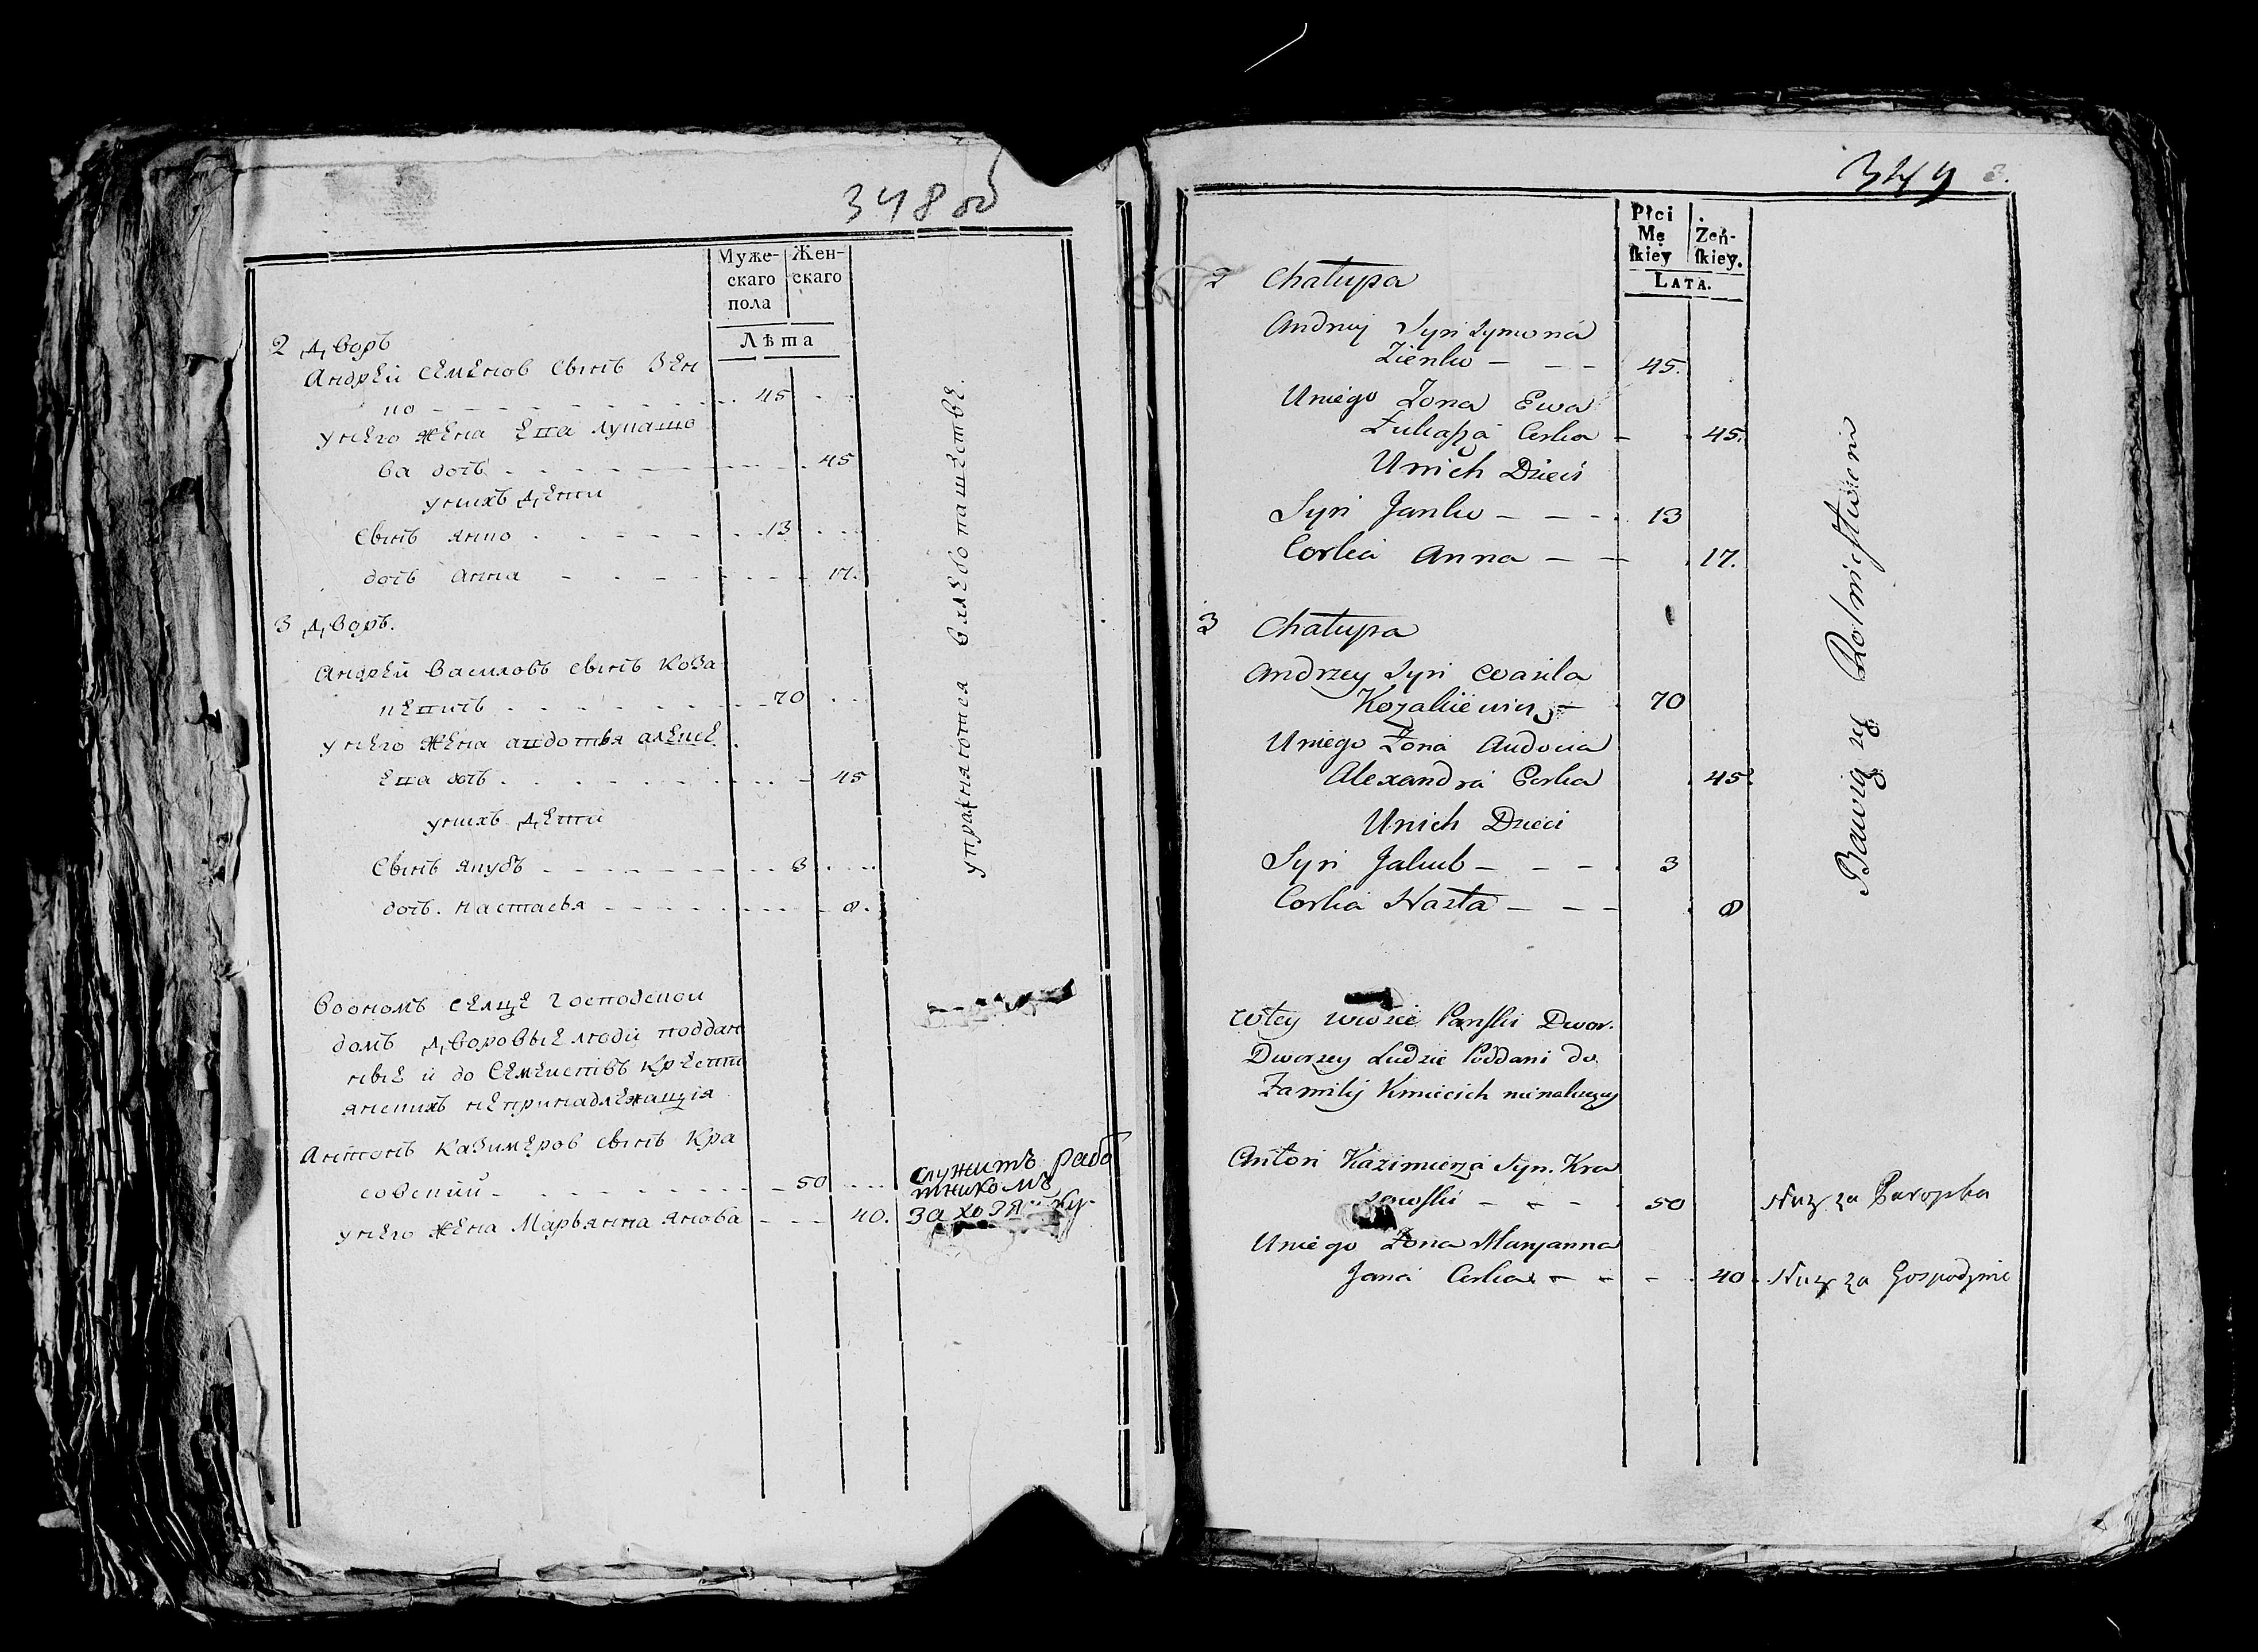 348 об
Муже-
скаго
пола
Жен-
скаго
Лѣта
2 Дворъ
Андрей Семенов Сынъ Зен
ко 45
у него жена Ева Лукашо
ва дочь 45
у нихъ дети
Сынъ Янко 13
дочь Анна 17.
3 Дворъ.
Андрей Василовъ сынъ Коза
кевичъ 70
у него жена Авдотья Алексе
ева дочь 45
у нихъ дети
Сынъ Якубъ 3
дочь. Настасья 8.
упражняются в хлебопашестве.
В ономъ селце Господской
домъ Дворовые люди поддан
ные и до Семействъ крести
янскихъ непринадлежащія
Антонъ Казимеров сынъ Кра
совский 50
служитъ рабо
тникомъ
у него жена Марьянна Янова 40.
за хозяйку
349
Płci
Mę
ſkiey
Żeń-
ſkiey.
LATA.
2 Chałupa
Andrzej Syn Symona
Zienko 45.
U niego Zona Ewa
Łukasza Corka 45.
U nich Dzieci
Syn Janko 13
Corka Anna 17.
3 Chałupa
Andrzey Syn Wasila
Kozakiewicz 70
U niego Zona Audocia
Alexandra Corka 45.
U nich Dzieci
Syn Jakub 3
Corka Nasta 8
Bawią się Rolnictwem
W tey wiosce Pański Dwor.
Dworzey Ludzie Poddani do
Familij Kmiecich nienalezący
Anton Kazimierza Syn. Kra
sowski 50 Służy za Paropka
U niego Zona Maryanna
Jana Corka 40 Służy za Gospodynie